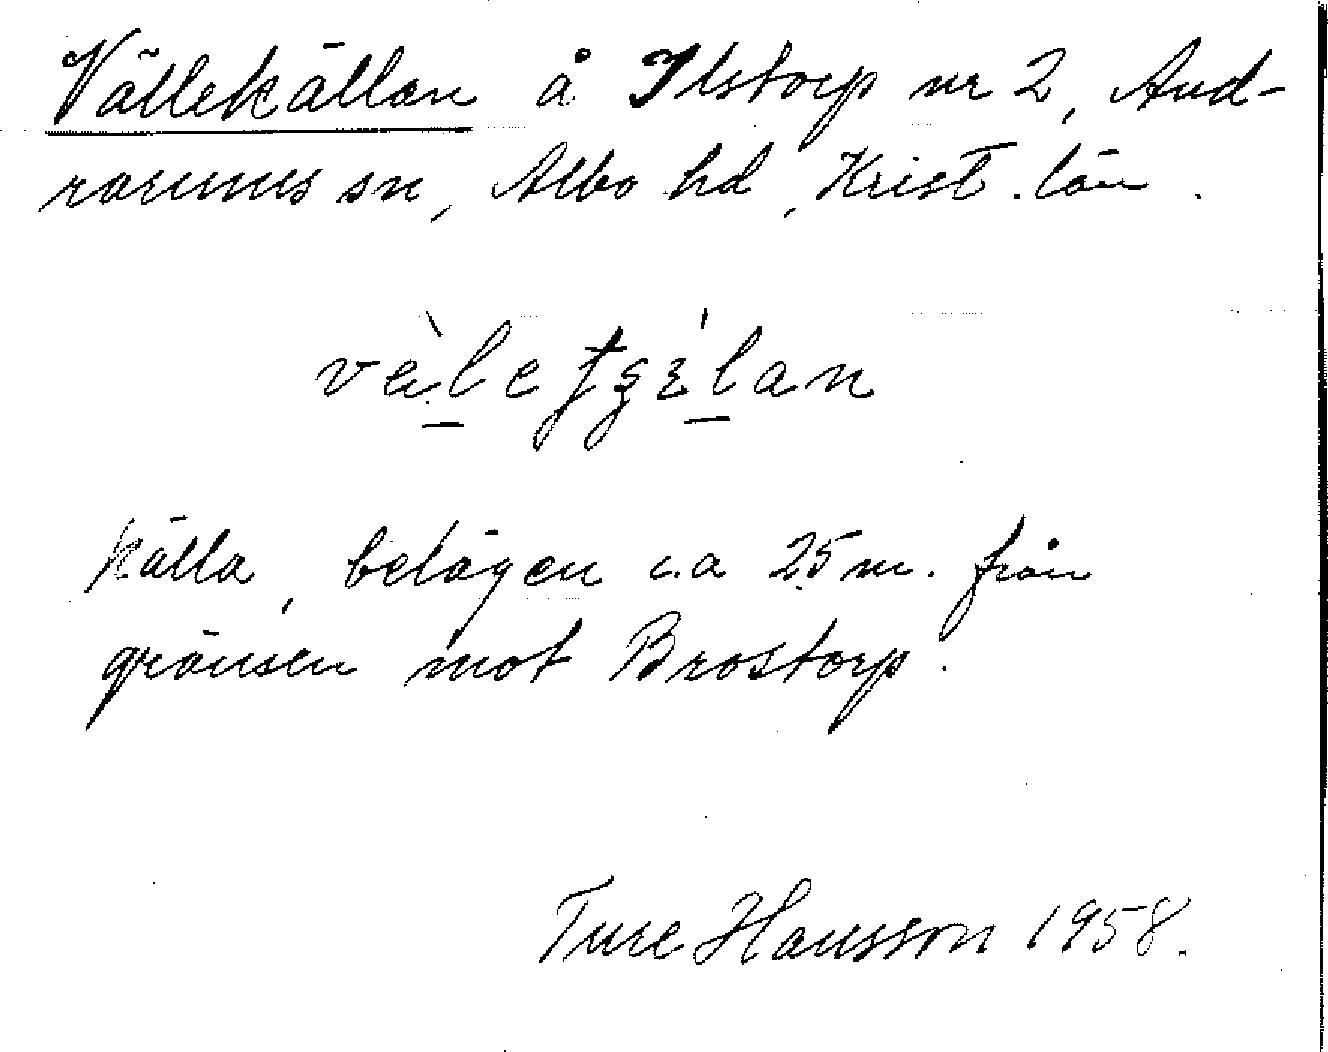 Vällekällan å Ilstorp nr 2, And-
rarums sn, Albo hd, Krist. län.
källa, belägen c.a 25 m. från
gränsen mot Brostorp.
Ture Hansson 1958.